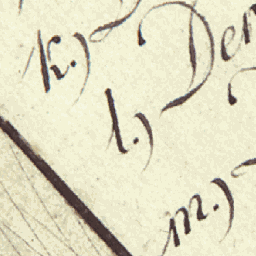 k.)
l.) Den
m.)